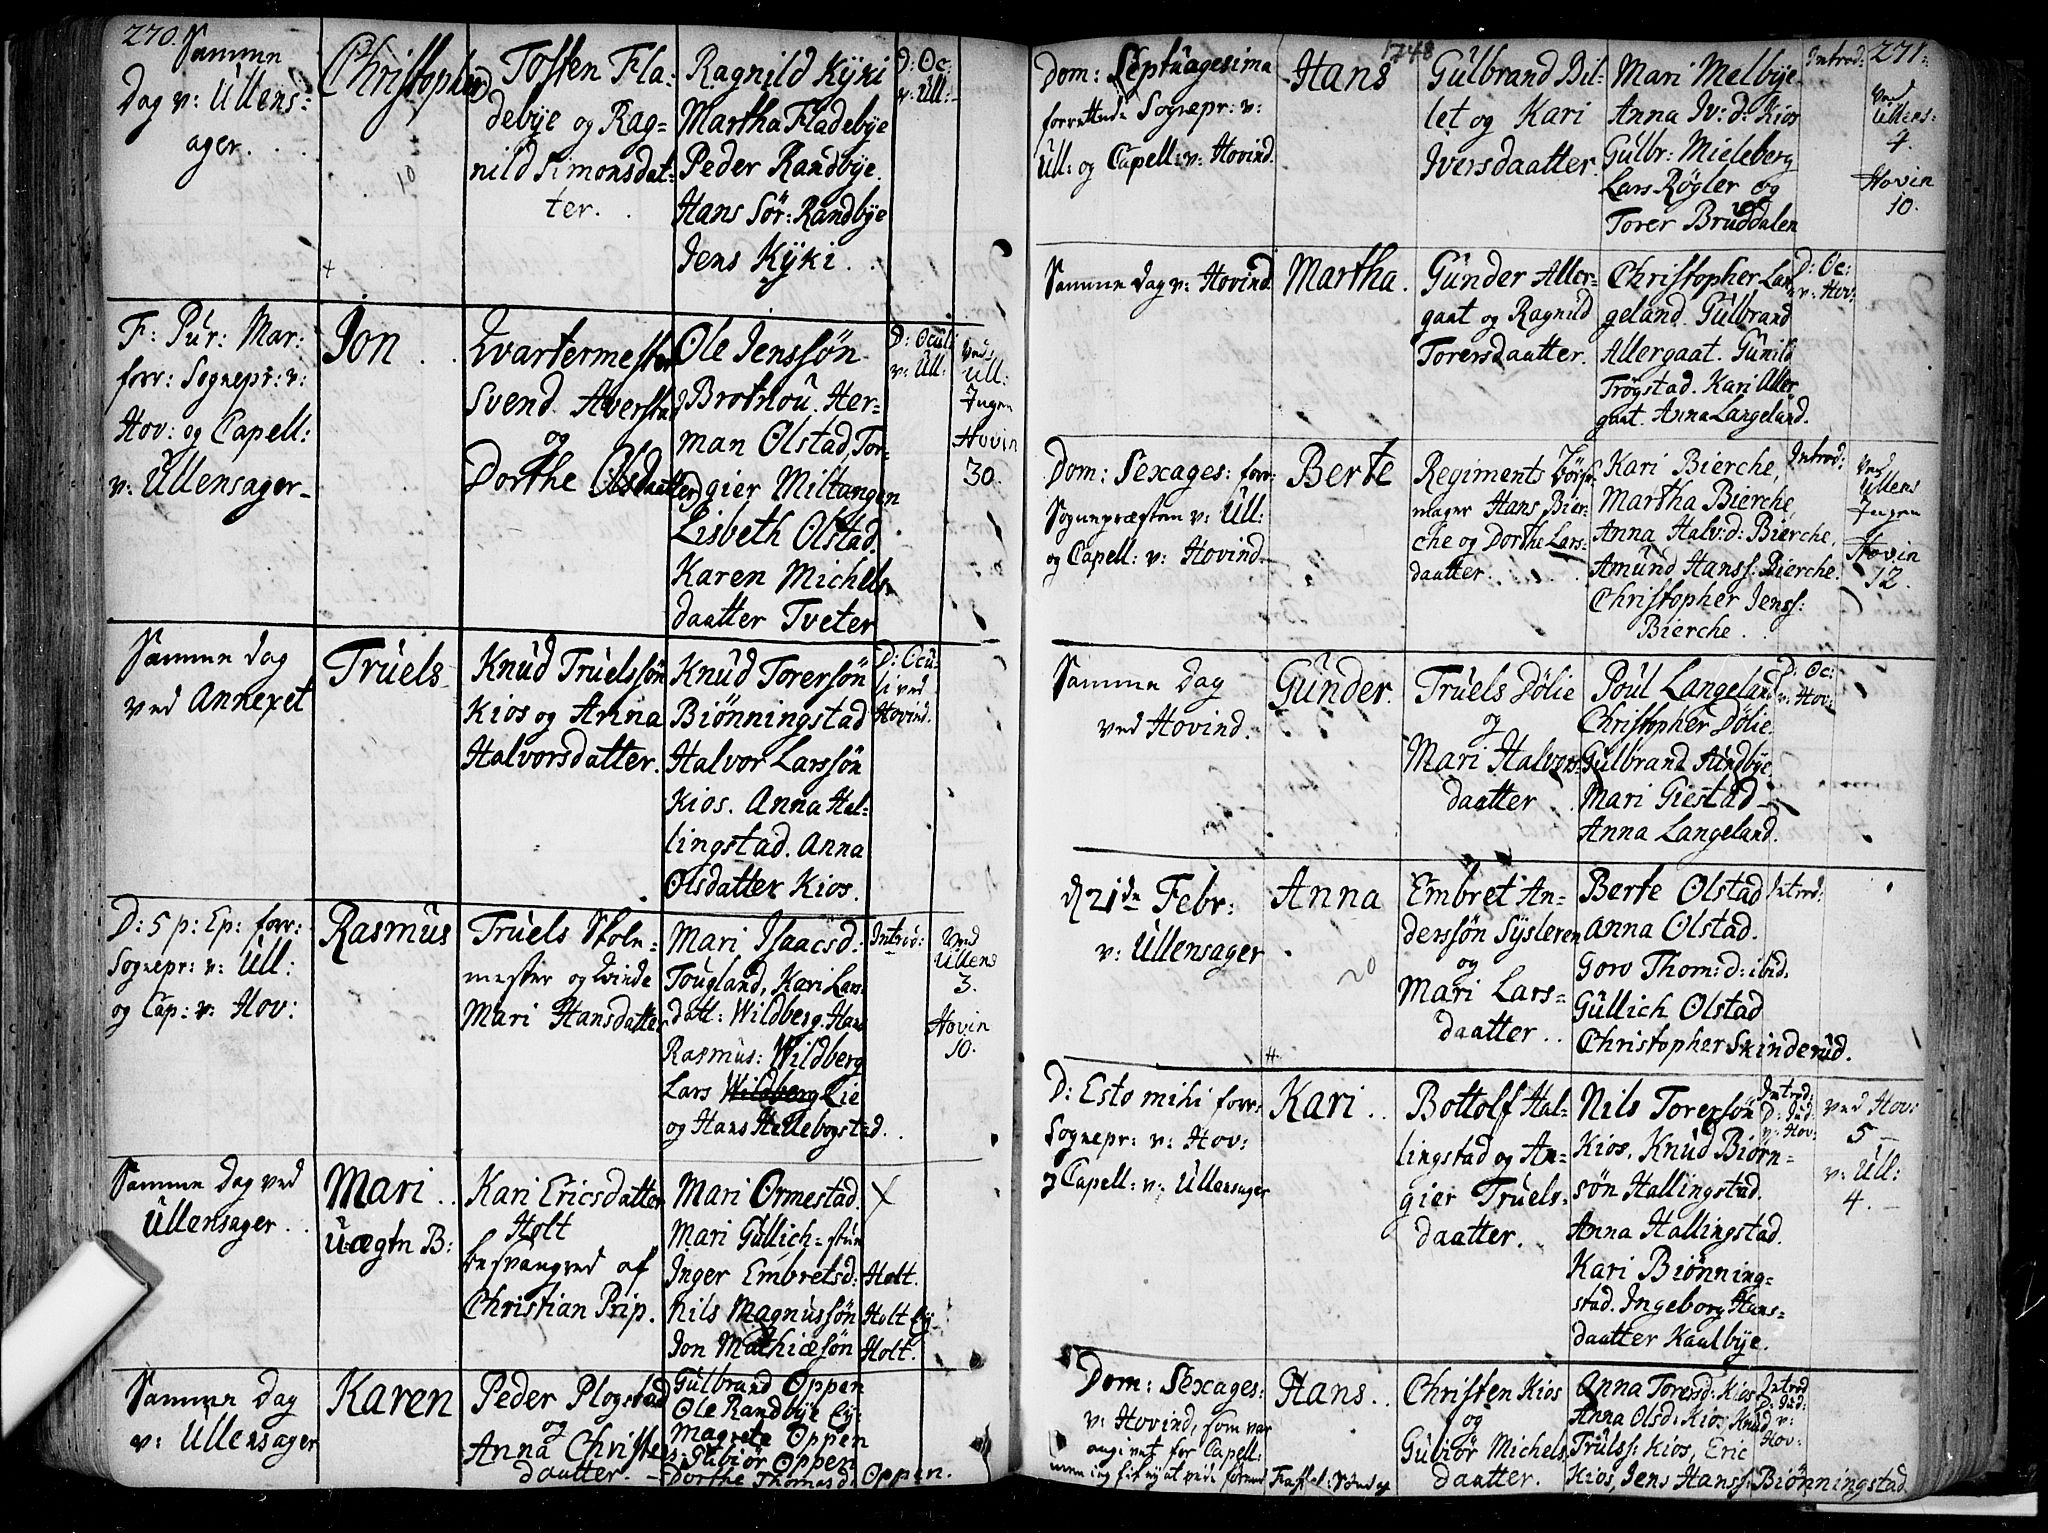 270.
Samme
Dag v: Ullens=
ager.
Christopher
10
Tosten Fla-
debye og Rag=
nild Simonsdat-
ter.
Ragnild Kÿki
Martha Fladebye
Peder Randbye.
Hans Sör: Randbye
Jens Kÿki.
D: Oc:
v: Ull:
F: Pur: Mar:
forr: Sognepr: v:
Hov: og Capell:
v: Ullensager
Jon
Qvartermester
Svend Aversta
og
Dorthe Olsdaatter
Ole Jenssön
Brotnou. Her=
man Olstad, Tor-
gier Miltangen
Lisbeth Olstad.
Karen Michels-
daatter Tveter
D: Oculi
v: Ull:
Ved
Ull:
Ingen
Hovin
30.
Samme dag
ved Annexet
Truels
Knud Truelssön
Kios og Anna
Halvorsdatter.
Knud Torersön
Biönningstad
Halvor Larssön
Kios. Anna Hal-
lingstad. Anna
Olsdatter Kios.
D: Ocu-
li ved
Hovind.
D: 5 p: Ep: forr:
Sognepr: v: Ull:
og Cap: v: Hov:
Rasmus
Truels Skole-
mester og Qvinde
Mari Hansdatter
Mari Isaacsd:
Tougland, Kari Lars-
datt: Wildberg. Hans
Rasmus: Wildberg
Lars Wildberg Lie
og Hans Hellebogstad.
Introd:
Ved
Ullens
3.
Hovin
10.
Samme Dag ved
Ullensager.
Mari
Uægtn B:
Kari Ericsdatter
Holt
besvangred af
Christian Prip.
Mari Ormestad.
Mari Gullich-stun
Inger Embretsd: Holt.
Nils Magnussön Holt Ey
Jon Mathiæsön Holt.
Samme Dag
v: Ullensager
Karen
Peder Plogstad
og
Anna Christens
daatter.
Gulbrand Oppen
Ole Randbye Ey:
Magrete Oppen
Gubiör Oppen
Dorthe Thomasd: Oppen.
1748
271.
Dom: Septuagesima
forrettede Sognepr: v:
Ull: og Capell: v: Hovind.
Hans
Gulbrand Bil-
let og Kari
Iversdaatter.
Mari Melbye
Anna Iv: d: Kios
Gulbr: Mieleberg
Lars Røgler og
Torer Bruddalen
Introd:
Ved
Ullens:
4.
Hovin
10.
Samme dag v: Hovind
Martha.
Gunder Aller-
gaat og Ragnild
Torersdaatter.
Christopher Lan
geland. Gulbrand
Allergaat. Gunild
Trögstad. Kari Aller
gaat. Anna Langeland.
D: Oc:
v: Hov:
Dom: Sexages: forr:
Sognepræsten v: Ull:
og Capell: v: Hovind.
Berte
Regiments Bösse
mager Hans Bier-
che og Dorthe Lars-
daatter.
Kari Bierche,
Martha Bierche,
Anna Halv: d: Bierche,
Amund Hanss. Bierche.
Christopher Jenss:
Bierche.
Introd:
Ved
Ullens
Ingen
Hovin
12.
Samme Dag
ved Hovind.
Gunder.
Truels Dölie
og
Mari Halvors-
daatter
Poul Langeland
Christopher Dölie.
Gulbrand Aandbye
Mari Giestad
Anna Langeland.
D: Oc:
v: Hov:
d 21de Febr:
v: Ullensager
Anna
20
Embret An-
derssön Sysleren
og
Mari Lars-
daatter.
Berte Olstad
Anna Olstad.
Goro Thom: d: ibid.
Gullich Olstad
Christopher Skinderud.
Introd:
D: Esto mihi forr:
Sognepr: v: Hov:
og Capell: v: Ullensager
Kari
Bottolf Hal-
lingstad og An-
gier Truels-
daatter.
Nils Torersön
Kios, Knud Biörn-
sön Hallingstad.
Anna Hallingstad.
Kari Biönning-
stad. Ingeborg Hans-
daatter Kaalbye.
Introd:
D: Jud:
v: Hov:
Ved Hov:
5
v: Ull:
4.
Dom: Sexages:
v: Hovind, som var
angivet for Capell:
Hans.
Christen Kios
og
Gubiör Michels
daatter.
Anna Torersd: Kios
Anna Olsd: Kios, Knud
Trulss: Kios, Eric
Kios, Jens Hanss: Biönningstad
Introd
D: Jud:
v:
Hov: